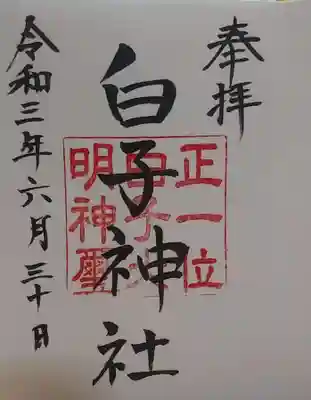 奉拝
白子神社
正一位
白子
明神璽
令和三年六月三十日